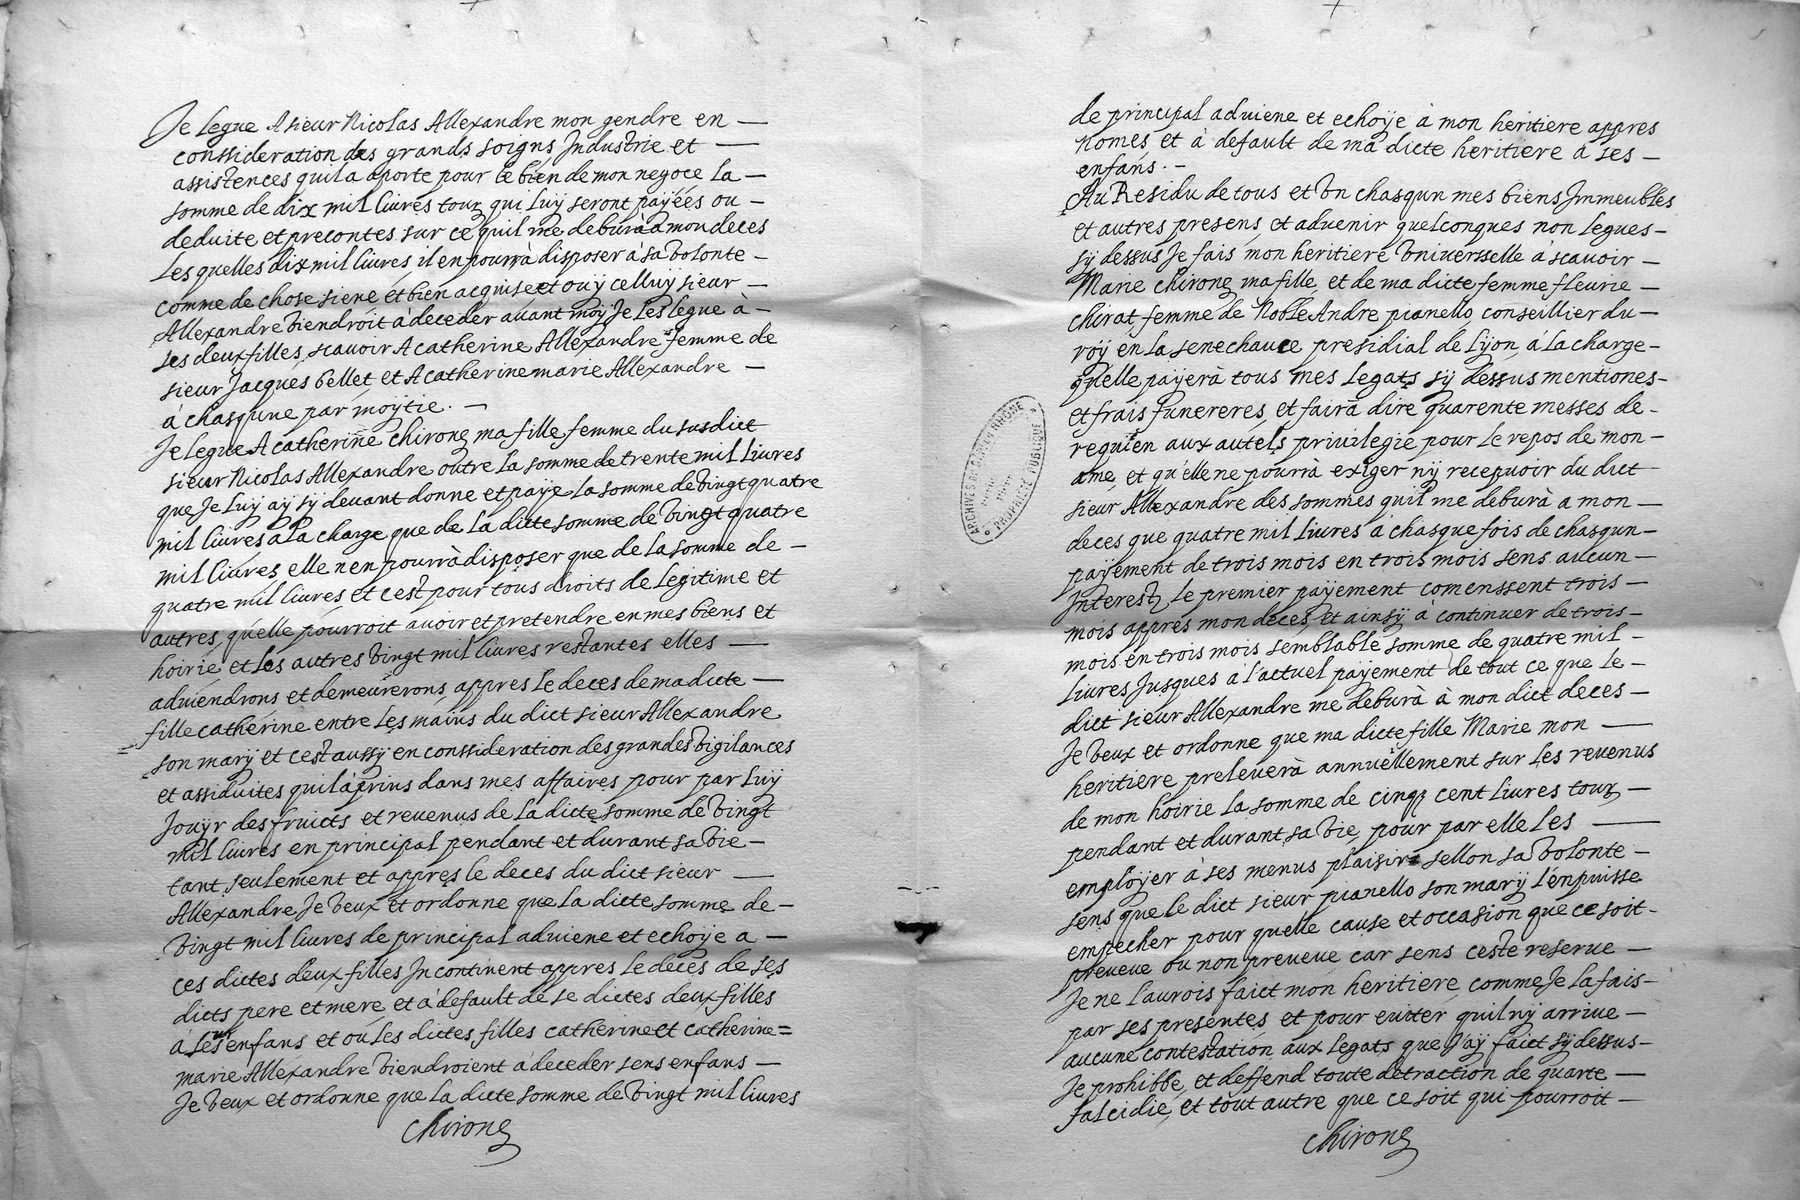 Je legue A sieur Nicolas Allexandre mon gendre en —
conssideration des grands soigns Industrie et —
assistences quil a aporte pour le bien de mon negoce la —
somme de dix mil livres tourz qui luÿ seront paÿées ou —
deduite et precontes sur ce quil me deburà a mon deces
Les quelles dix mil livres il en pourrà disposer à sa volonte —
comme de chose siene et bien acquise et ou ÿ celluy sieur —
Allexandre viendroit à deceder avant moÿ Je les legue à —
ses deux filles, scavoir A catherine Allexandre femme de
sieur Jacques bellet, et A catherine marie Allexandre —
à chasqune par moÿtie. —
Je legue A catherine chirong ma fille femme du susdict
sieur Nicolas Allexandre outre la somme de trente mil livres
que Je luÿ aÿ sÿ devant donne et paÿe la somme de vingt quatre
mil livres a la charge que de la dicte somme de vingt quatre
mil livres, elle n'en pourrà disposer que de la somme de —
quatre mil livres et cest pour tous droits de legitime et
autres, qu'elle pourroit avoir et pretendre en mes biens et
hoirie, et les autres vingt mil livres restantes elles —
adviendrons et demeurerons, appres le deces de ma dicte —
fille catherine entre les mains du dict sieur Allexandre
son marÿ et cest aussÿ en conssideration des grandes vigilances
et assiduites quil à prins dans mes affaires pour par luÿ
Jouÿr des fruicts et revenus de la dicte somme de vingt
mil livres en principal pendant et durant sa vie —
tant seulement et appres le deces du dict sieur —
Allexandre Je veux et ordonne que la dicte somme de —
vingt mil livres de principal adviene et echoÿe a —
ces dictes deux filles Incontinent appres le deces de ses
dicts pere et mere et à default de se dictes deux filles
a leurs enfans et ou les dictes filles catherine et catherine =
marie Allexandre viendroient a deceder sens enfans —
Je veux et ordonne que la dicte somme de vingt mil livres
chirong
de principal adviene et echoÿe à mon heritiere appres
nomes et à default de ma dicte heritiere à ses —
enfans. —
Au Residu de tous et un chasqun mes biens Immeubles
et autres presens et advenir quelconques non legues —
sÿ dessus Je fais mon heritiere universselle à scavoir —
Marie chirong ma fille, et de ma dicte femme fleurie —
chirat, femme de Noble Andre pianello conseillier du —
roÿ en la senechauce presidial de Lÿon, à la charge —
quelle paÿerà tous mes legats sÿ dessus mentiones —
et frais funereres, et fairà dire quarente messes de —
requien aux autels privilegie pour le repos de mon —
ame, et qu'elle ne pourrà exiger nÿ recepvoir du dict
sieur Allexandre des sommes quil me deburà a mon —
deces que quatre mil livres a chasque fois de chasqun —
paÿement de trois mois en trois mois sens aucun —
Interest, le premier paÿement comenssent trois —
mois appres mon deces, et ainsÿ à continuer de trois —
mois en trois mois semblable somme de quatre mil —
livres Jusques à l'actuel paÿement de tout ce que le —
dict sieur Allexandre me deburà à mon dict deces —
Je veux et ordonne que ma dicte fille Marie mon —
heritiere preleverà annuellement sur les revenus
de mon hoirie la somme de cinq cent livres tourz —
pendant et durant sa vie, pour par elle les —
employer à ses menus plaisirs sellon sa volonte —
sens que le dict sieur pianello son marÿ l'en puisse
empecher pour quelle cause et occasion que ce soit —
preveue ou non preveue car sens ceste reserve —
Je ne l'aurois faict mon heritiere, comme Je la fais —
par ses presentes et pour eviter quil nÿ arrive —
aucune contestation aux legats que J'aÿ faict sÿ dessus —
Je prohibbe, et deffend toute detraction de quarte —
falcidie, et tout autre que ce soit qui pourroit —
chirong
ARCHIVES DU DÉP.T DU RHÔNE
PROPRIÉTÉ PUBLIQUE